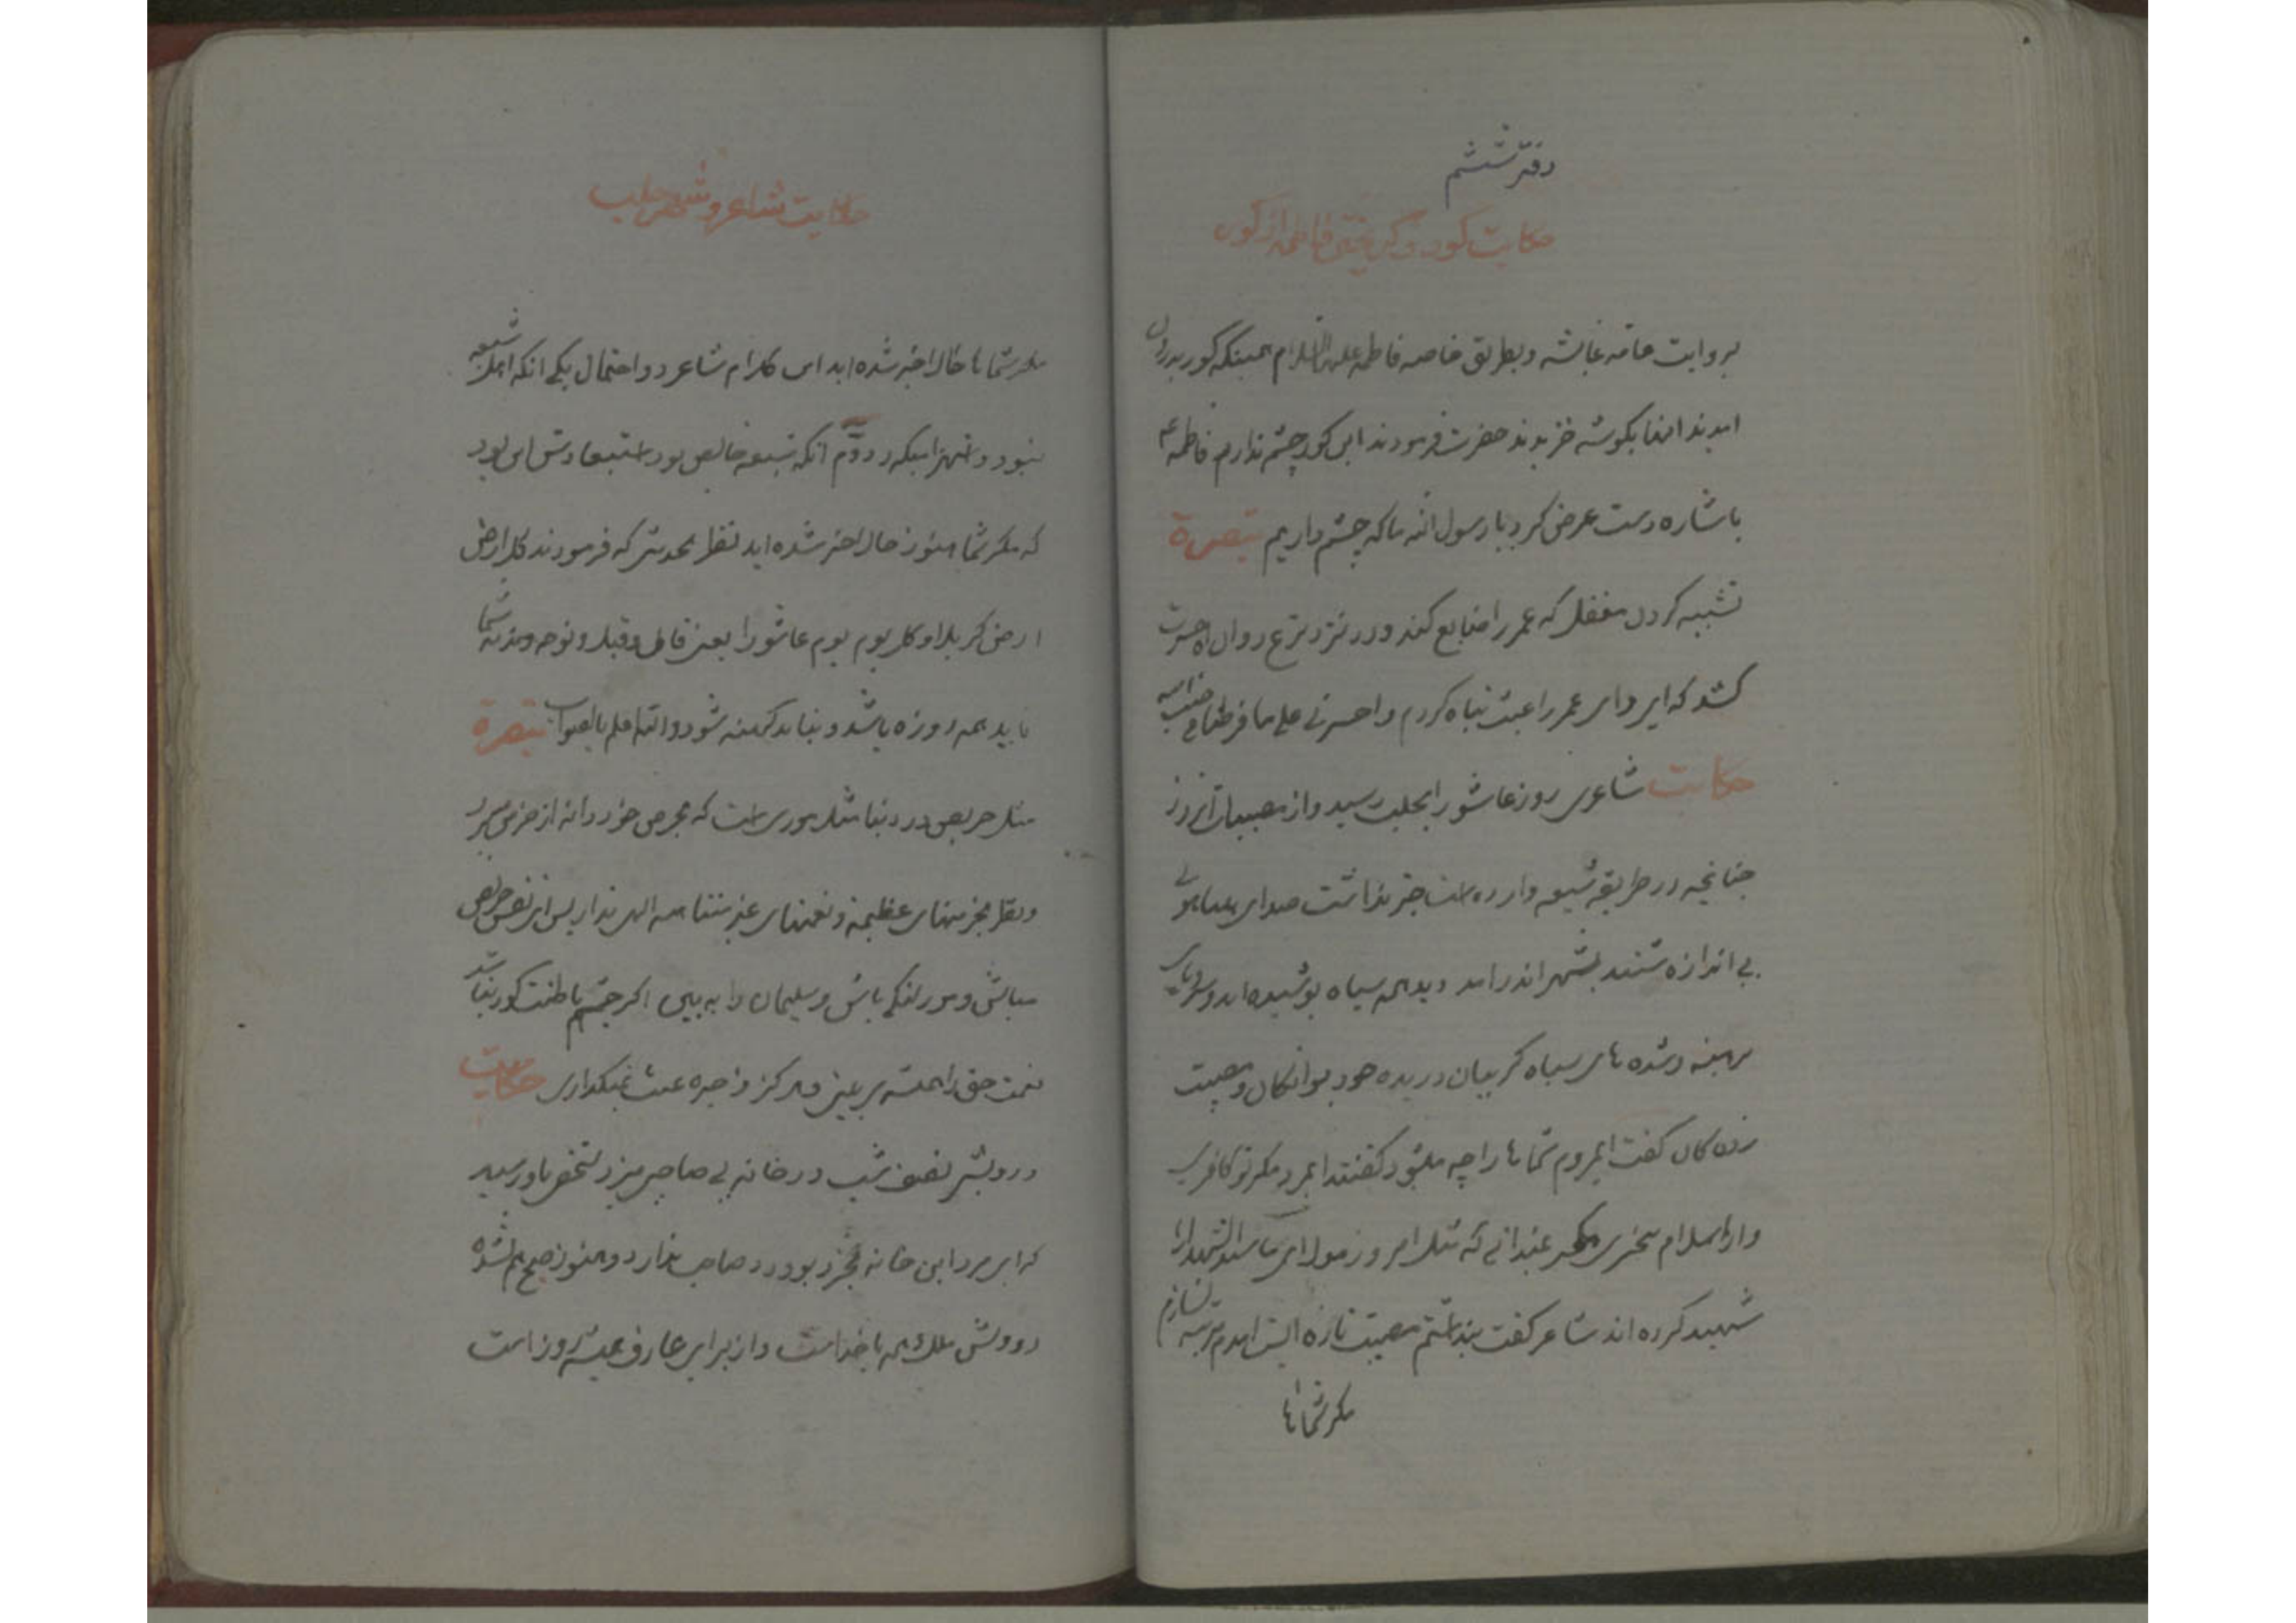 دفتر ششم
حکایت کور و گریختن فاطمه از کور
بروایت عامه عایشه و بطریق خاصه فاطمه علیها السلام همینکه کور بدرون
امدند انها بگوشه خزیدند حضرت فرمودند این کور چشم ندارد فاطمه ع
باشاره دست عرض کرد یا رسول الله ما که چشم داریم تبصرة
تشبیه کردن مغفل که عمر را ضایع کند و در نزد نزع روان اه حسرت
کشد که ای وای عمر را عبث تباه کردم وا حسرتی علی ما فرطنا فی جنب الله
حکایت شاعری روز عاشورا بحلب رسید و از مصیبات انروز
چنانچه در طریقه شیعه وارد است خبر نداشت صدای هیاهوی
بی اندازه شنید بشهر اندر امد دید همه سیاه پوشیده اند و سر و پای
برهنه و شده های سیاه گریبان دریده چون دیوانگان و مصیبت
زده کان گفت ایمردم شما ها را چه میشود گفتند ایمرد مگر تو کافری
و از اسلام بیخبری مگر نمیدانی که مثل امروز مولای ما سید الشهدا را
شهید کرده اند شاعر گفت پنداشتم مصیبت تازه ایست امدم مرثیه بسازم
مگر شما ها
حکایت شاعر و شهر حلب
مگر شما ها حالا خبر شده اید این کلام شاعر دو احتمال یکی انکه اهل شیعه
نبود و استهزا میکرد دوم انکه شیعه خالص بود استبعادش این بود
که مگر شما هنوز حالا خبر شده اید نظر بحدیثی که فرمودند کل ارض
ارض کربلا و کل یوم یوم عاشورا یعنی قاتل و قتیل و نوحه و ندبه شما
باید همه روزه باشد و نباید کهنه شود والله اعلم بالصواب تبصرة
مثل حریص در دنیا مثل موری است که بحرص خود دانه از خرمن میبرد
و نظر بخزینهای عظیمه و نعمتهای غیر متناهیه الهی ندارد پس ای نفس حریص
مباش و مور لنگی باش و سلیمان را به بین اگر چشم باطنت کور نباشد
نعمت حق را همیشه می بینی و هرگز ذخیره عبث نمیگذاری حکایت
درویشی نصف شب در خانه بی صاحبی میزد شخصی باو رسید
که ای مرد این خانه مخروبه بود و صاحب ندارد و هنوز صبح هم نشده
درویش ملک همه با خداست و از برای عارف همیشه روز است